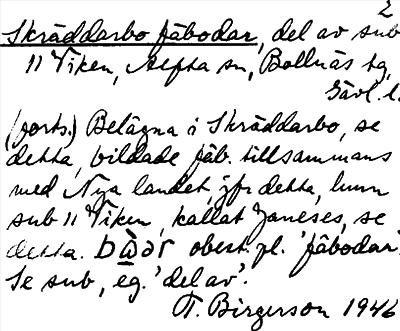 2
Skräddarbo fäbodar, del av sub
11 Viken, Alfta sn, Bollnäs tg,
Gävl. l.
(forts.) Belägna i Skräddarbo, se
detta, bildade fäb. tillsammans
med Nya landet, jfr detta, hum
sub 11 Viken, kallat Janeses, se
detta. obest. pl. 'fäbodar'.
Se sub, eg. 'del av'.
T. Birgerson 1946